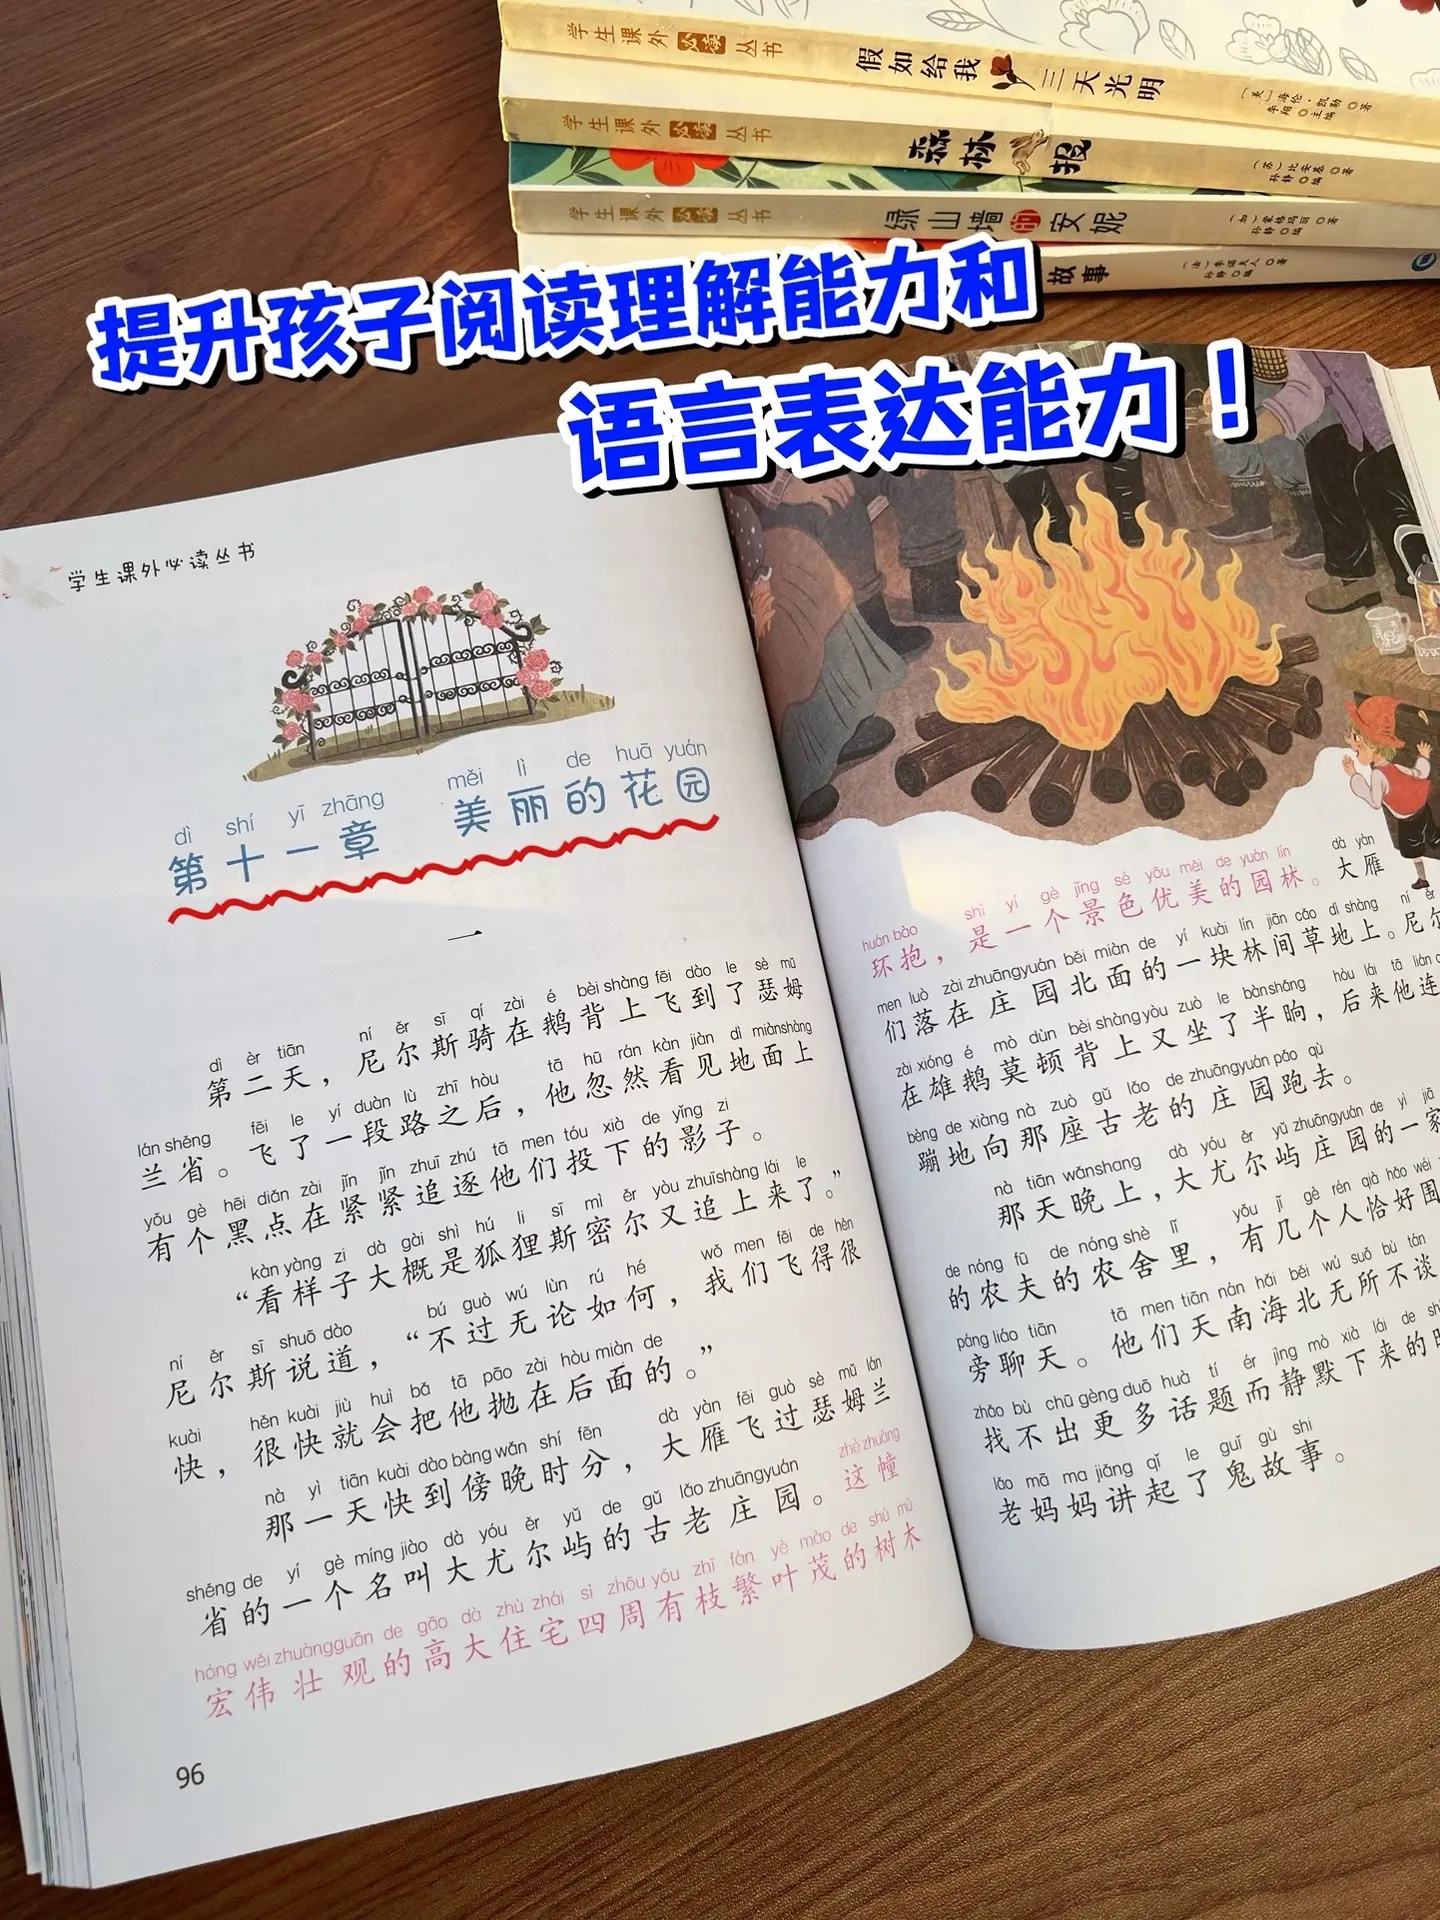 学生课外必读丛书 假如给我三天光明 〔美〕海伦·凯勒 著
李翔 主编
学生课外必读丛书 森林报 〔苏〕比安基 著
孙静 编
学生课外必读丛书 绿山墙的安妮 〔加〕蒙格玛丽 著
孙静 编
故事 〔法〕 夫人 著
孙静 编
提升孩子阅读理解能力和
语言表达能力！
学生课外必读丛书
dì shí yī zhāng měi lì de huā yuán
第十一章 美丽的花园
一
dì èr tiān ní ěr sī qí zài é bèi shàng fēi dào le sè mǔ
第二天，尼尔斯骑在鹅背上飞到了瑟姆
lán shěng fēi le yí duàn lù zhī hòu tā hū rán kàn jiàn dì miàn shàng
兰省。飞了一段路之后，他忽然看见地面上
yǒu gè hēi diǎn zài jǐn jǐn zhuī zhú tā men tóu xià de yǐng zi
有个黑点在紧紧追逐他们投下的影子。
kàn yàng zi dà gài shì hú li sī mì ěr yòu zhuī shàng lái le
“看样子大概是狐狸斯密尔又追上来了。”
ní ěr sī shuō dào bú guò wú lùn rú hé wǒ men fēi de hěn
尼尔斯说道，“不过无论如何，我们飞得很
kuài hěn kuài jiù huì bǎ tā pāo zài hòu miàn de
快，很快就会把他抛在后面的。”
nà yì tiān kuài dào bàng wǎn shí fēn dà yàn fēi guò sè mǔ lán
那一天快到傍晚时分，大雁飞过瑟姆兰
shěng de yí gè míng jiào dà yóu ěr yǔ de gǔ lǎo zhuāng yuán zhè zhuàng
省的一个名叫大尤尔屿的古老庄园。这幢
hóng wěi zhuàng guān de gāo dà zhù zhái sì zhōu yǒu zhī fán yè mào de shù mù
宏伟壮观的高大住宅四周有枝繁叶茂的树木
96
huán bào shì yí gè jǐng sè yōu měi de yuán lín dà yàn
环抱，是一个景色优美的园林。大雁
men luò zài zhuāng yuán běi miàn de yí kuài lín jiān cǎo dì shàng ní ěr
们落在庄园北面的一块林间草地上。尼尔
zài xióng é mò dùn bèi shàng yòu zuò le bàn shǎng hòu lái tā lián
在雄鹅莫顿背上又坐了半晌，后来他连
bèng de xiàng nà zuò gǔ lǎo de zhuāng yuán pǎo qù
蹦地向那座古老的庄园跑去。
nà tiān wǎn shang dà yóu ěr yǔ zhuāng yuán de yì jiā
那天晚上，大尤尔屿庄园的一家
de nóng fū de nóng shè lǐ yǒu jǐ gè rén qià hǎo wéi
的农夫的农舍里，有几个人恰好围
páng liáo tiān tā men tiān nán hǎi běi wú suǒ bù tán
旁聊天。他们天南海北无所不谈
zhǎo bù chū gèng duō huà tí ér jìng mò xià lái de shí
找不出更多话题而静默下来的时
lǎo mā ma jiǎng qǐ le guǐ gù shi
老妈妈讲起了鬼故事。